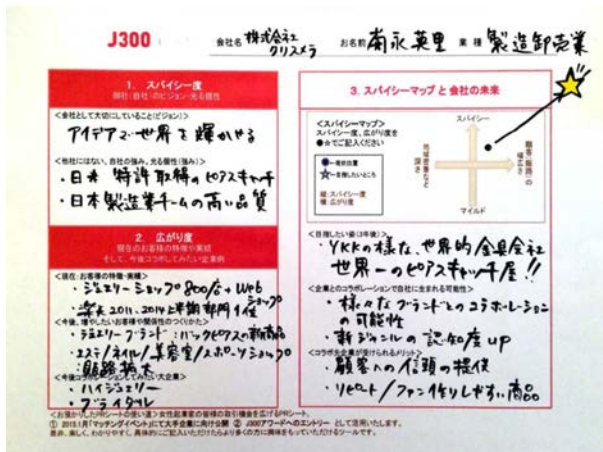 J300
会社名 株式会社クリスメラ お名前 南永英里 業種 製造卸売業
1. スパイシー度
御社(自社)のビジョン・光る個性
<会社として大切にしていること(ビジョン)>
アイデアで世界を輝かせる
<他社にはない、自社の強み。光る個性(強み)>
・日米 特許取得のピアスキャッチ
・日本製造業チームの高い品質
2. 広がり度
現在のお客様の特徴や実績
そして、今後コラボしてみたい企業例
<現在:お客様の特徴・実績>
・ジュエリーショップ800店+Web
・楽天2011、2014上半期部門1位ショップ
<今後、増やしたいお客様や関係性のつくりかた>
・ジュエリーブランド:バックピアスの新商品
・エステ/ネイル/美容室/スポーツショップ
:販路拡大
<今後コラボレーションしてみたい大企業>
・ハイジュエリー
・ブライダル
3. スパイシーマップ と 会社の未来
<スパイシーマップ>
スパイシー度、広がり度を
●☆でご記入ください
●=現状位置
☆=目指したいところ
縦:スパイシー度
横:広がり度
スパイシー
地域密着など
深さ
顧客(販路)の
幅広さ
マイルド
<目指したい姿(3年後)>
・YKKの様な、世界的金具会社
世界一のピアスキャッチ屋!!
<企業とのコラボレーションで自社に生まれる可能性>
・様々なブランドとのコラボレーション
の可能性
・新ジャンルの認知度up
<コラボ先企業が受けられるメリット>
・顧客への信頼の提供
・リピート/ファン作りしやすい商品
<お預かりしたPRシートの使い道>女性起業家の皆様の取引機会を広げるPRシート。
① 2015.1月「マッチングイベント」にて大手企業に向け公開 ② J300アワードへのエントリー として活用いたします。
是非、楽しく、わかりやすく、具体的にご記入いただけたらより多くの方に興味をもっていただけるツールです。